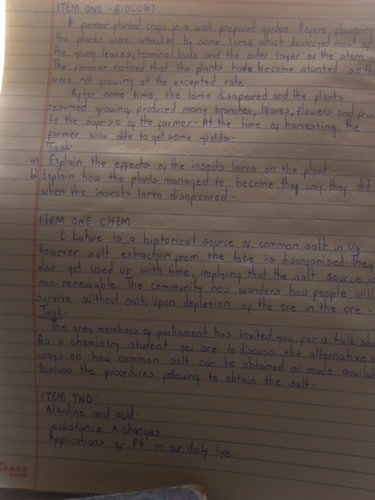 ITEM ONE - BIOLOGY
A farmer planted crops in a well prepared garden. Before, flowering
the plants were attacked by some larva which destroyed most of
the young leaves, terminal buds and the outer layer of the stem.
The farmer noticed that the plants have become stunted as the
were not growing at the excepted rate.
After some time, the larva disapeared and the plants
resumed growing produced many branches, leaves, flowers, and fru
to the suprise of the farmer. At the time of harvesting the
farmer was able to get some yields.
Task
a) Explain the effects of the insects larva on the plant
b) Explain how the plants managed to become they way they did
when the insects larva disappeared.
ITEM ONE CHEM
L. Katwe is a historical source of common salt in Ug
However salt extraction from the lake is disorganised. They
also get used up with time, implying that the salt source is
non-renewable. The community now wonders how people will
survive without salt, upon depletion of the ore in the ore.
Task
The area members of parliament has invited you for a talk sh
As a chemistry student you are to discuss the alternative
ways on how common salt can be obtained or made availab
Discuss the procedures following to obtain the salt.
ITEM TWO:
Alkaline and acid.
substance x changes
Applications of PH in our daily live